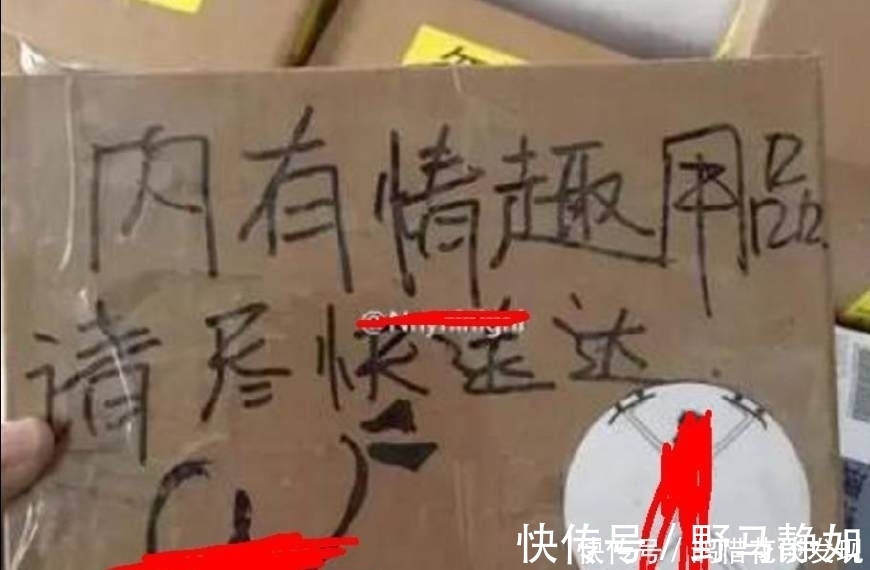 内有情趣用品
请尽快送达.
快传号 / 野马静如